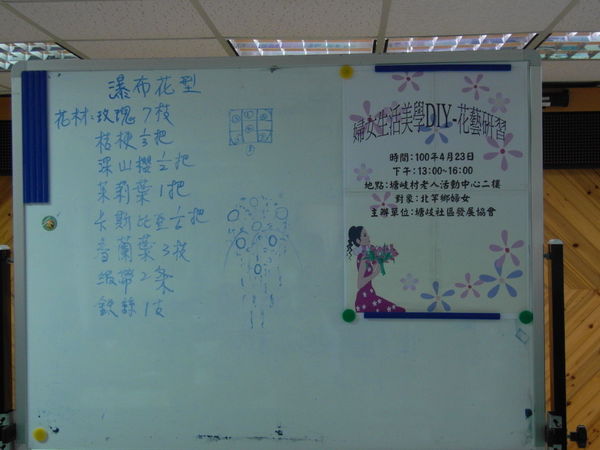 瀑布花型
花材：玫瑰 7枝
桔梗 1/3把
深山櫻 1/2把
茉莉葉 1把
卡斯比亞 1/2把
音蘭葉 3枝
緞帶 2条
鉄絲 1支
婦女生活美學DIY-花藝研習
時間:100年4月23日
下午:13:00~16:00
地點:塘岐村老人活動中心二樓
對象:北竿鄉婦女
主辦單位:塘岐社區發展協會